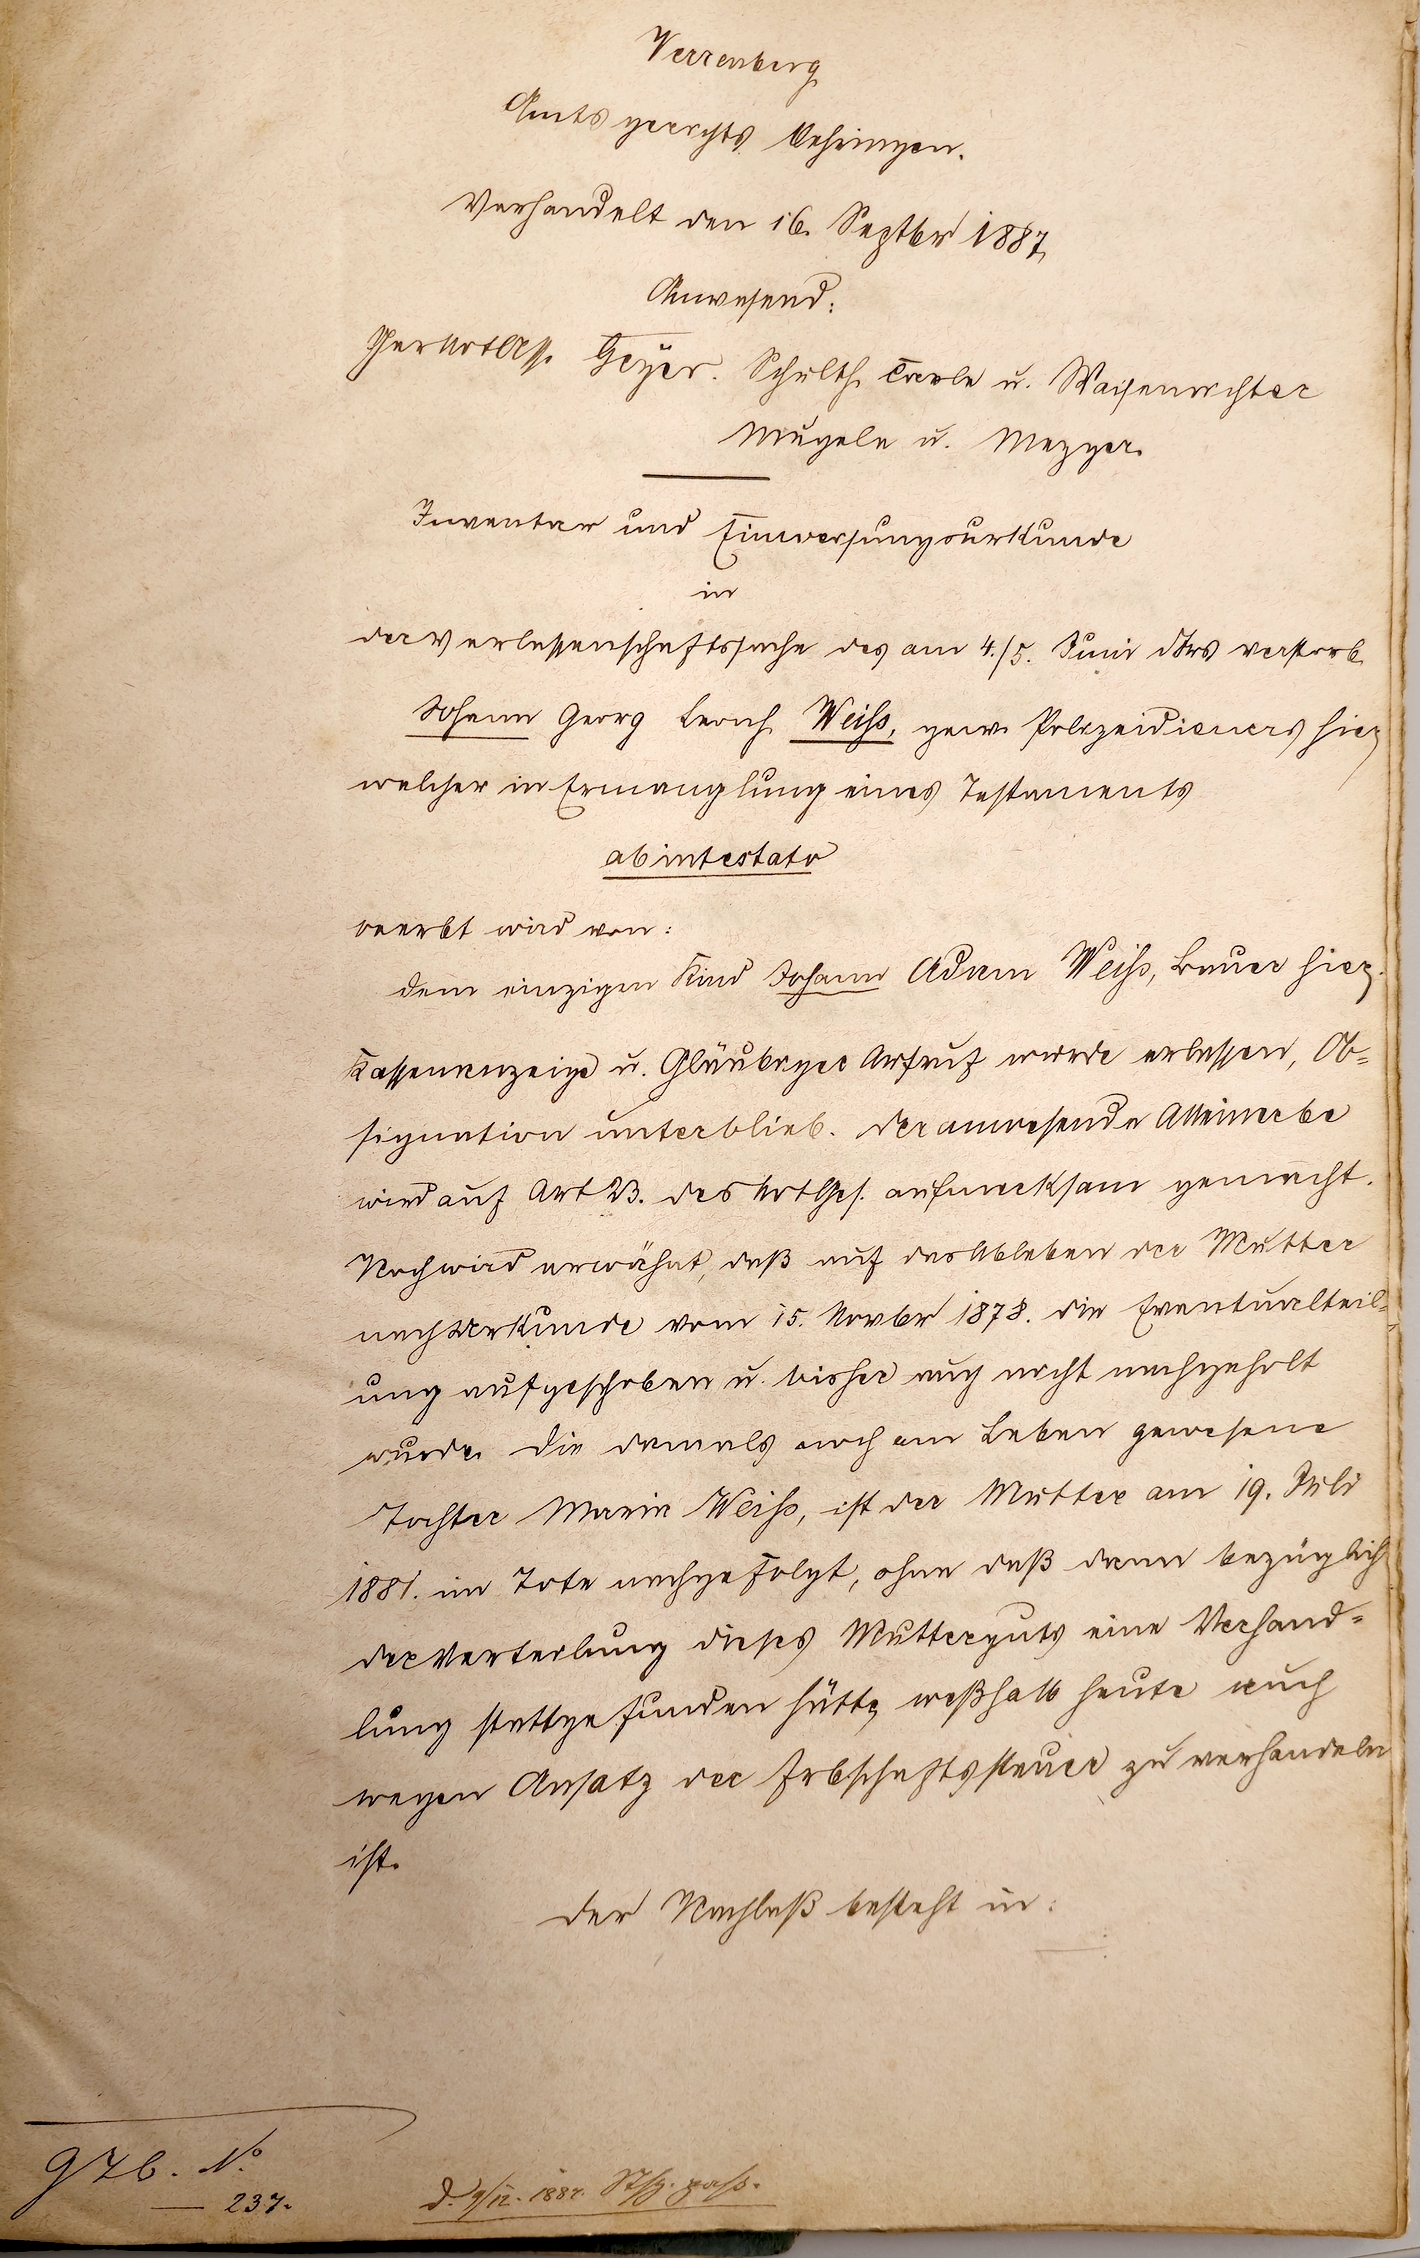 Verrenberg
Amtsgerichts Oehringen.
Verhandelt den 16. Septbr 1887.
Anwesend:
Geyer. Schulth. u. Waisenrichter
Mugele u. Mezger.
Inventar und Einweisungsurkunde
in
der Verlassenschaftssache des am 4./5. Juni verstorb.
Johann Georg Weiss, gew. Polizeidieners hier,
welcher in Ermanglung eines Testaments
ab intestato
beerbt wird von:
dem einzigen Kind Johann Adam Weiss, Bauer hier.
Kassenanzeige u. Gläubiger Aufruf wurde erlassen, Ob=
signation unterblieb. Der anwesende Alleinerbe
wird auf Art 23. des NotGes. aufmerksam gemacht.
Noch wird erwähnt, daß auf das Ableben der Mutter
nach Urkunde vom 15. Novbr 1878. die Eventualteil=
ung aufgeschoben u. bisher auch nicht nachgeholt
wurde. Die damals noch am Leben gewesene
Tochter Maria Weiss, ist der Mutter am 19. Juli
1881. im Tote nachgefolgt, ohne daß dann bezüglich
der Verteilung dieses Mutterguts eine Verhand=
lung stattgefunden hätte, weßhalb heute auch
wegen Ansatz der Erbschaftssteuer zu verhandeln
ist.
Der Nachlaß besteht in:
No
237.
d. 9/12. 1887.